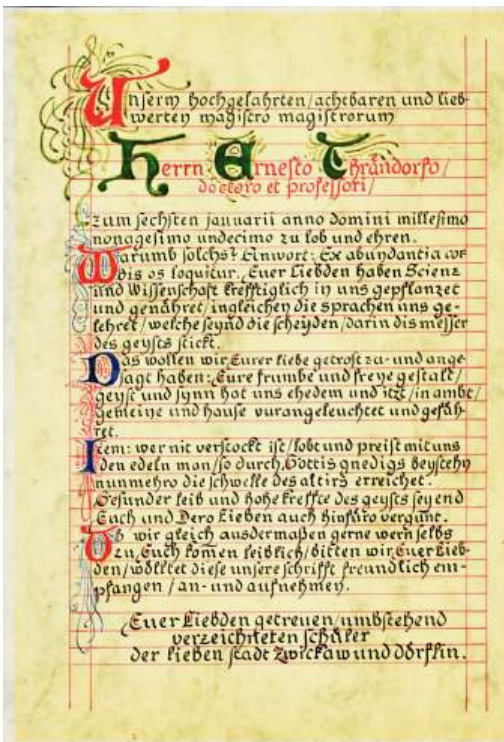 Unserm hochgelahrten/achtbaren und lieb-
werten magistro magistrorum
Herrn Ernesto Thrändorfo/
doctoro et professori/
zum sechsten januarii anno domini millesimo
nonagesimo undecimo zu lob und ehren.
Warumb solchs? Einwort: Ex abundantia cor
dis os loquitur. Euer Liebden haben Scienz
und Wissenschaft krefftiglich in uns gepflanzet
und genähret/ingleichen die sprachen uns ge-
lehret/welche seynd die scheyden/darin dis messer
des geysts stickt.
Das wollen wir Eurer liebe getrost za- und ange-
sagt haben: Eure frumbe und freye gestalt/
geyst und synn hot uns ehedem und itzt/in ambt/
gemeine und hause vurangeleuchtet und gefüh-
ret.
Item: wer nit verstockt ist/lobt und preist mit uns
den edeln man/so durch Gottis gnedigs beystehn
nunmehro die schwelle des altirs erreichet.
Gesunder leib und hohe kreffte des geysts seyend
Euch und Dero Lieben auch hinfüro vergunt.
Ob wir gleich ausdermaßen gerne wern selbs
zu Euch komen leiblich/bitten wir Euer Lieb-
den/wölltet diese unsere schrifft freundlich em-
pfangen/an- und aufnehmen.
Euer Liebden getreuen/umbstehend
verzeichteten schüler
der lieben stadt Zwickaw und dörflin.